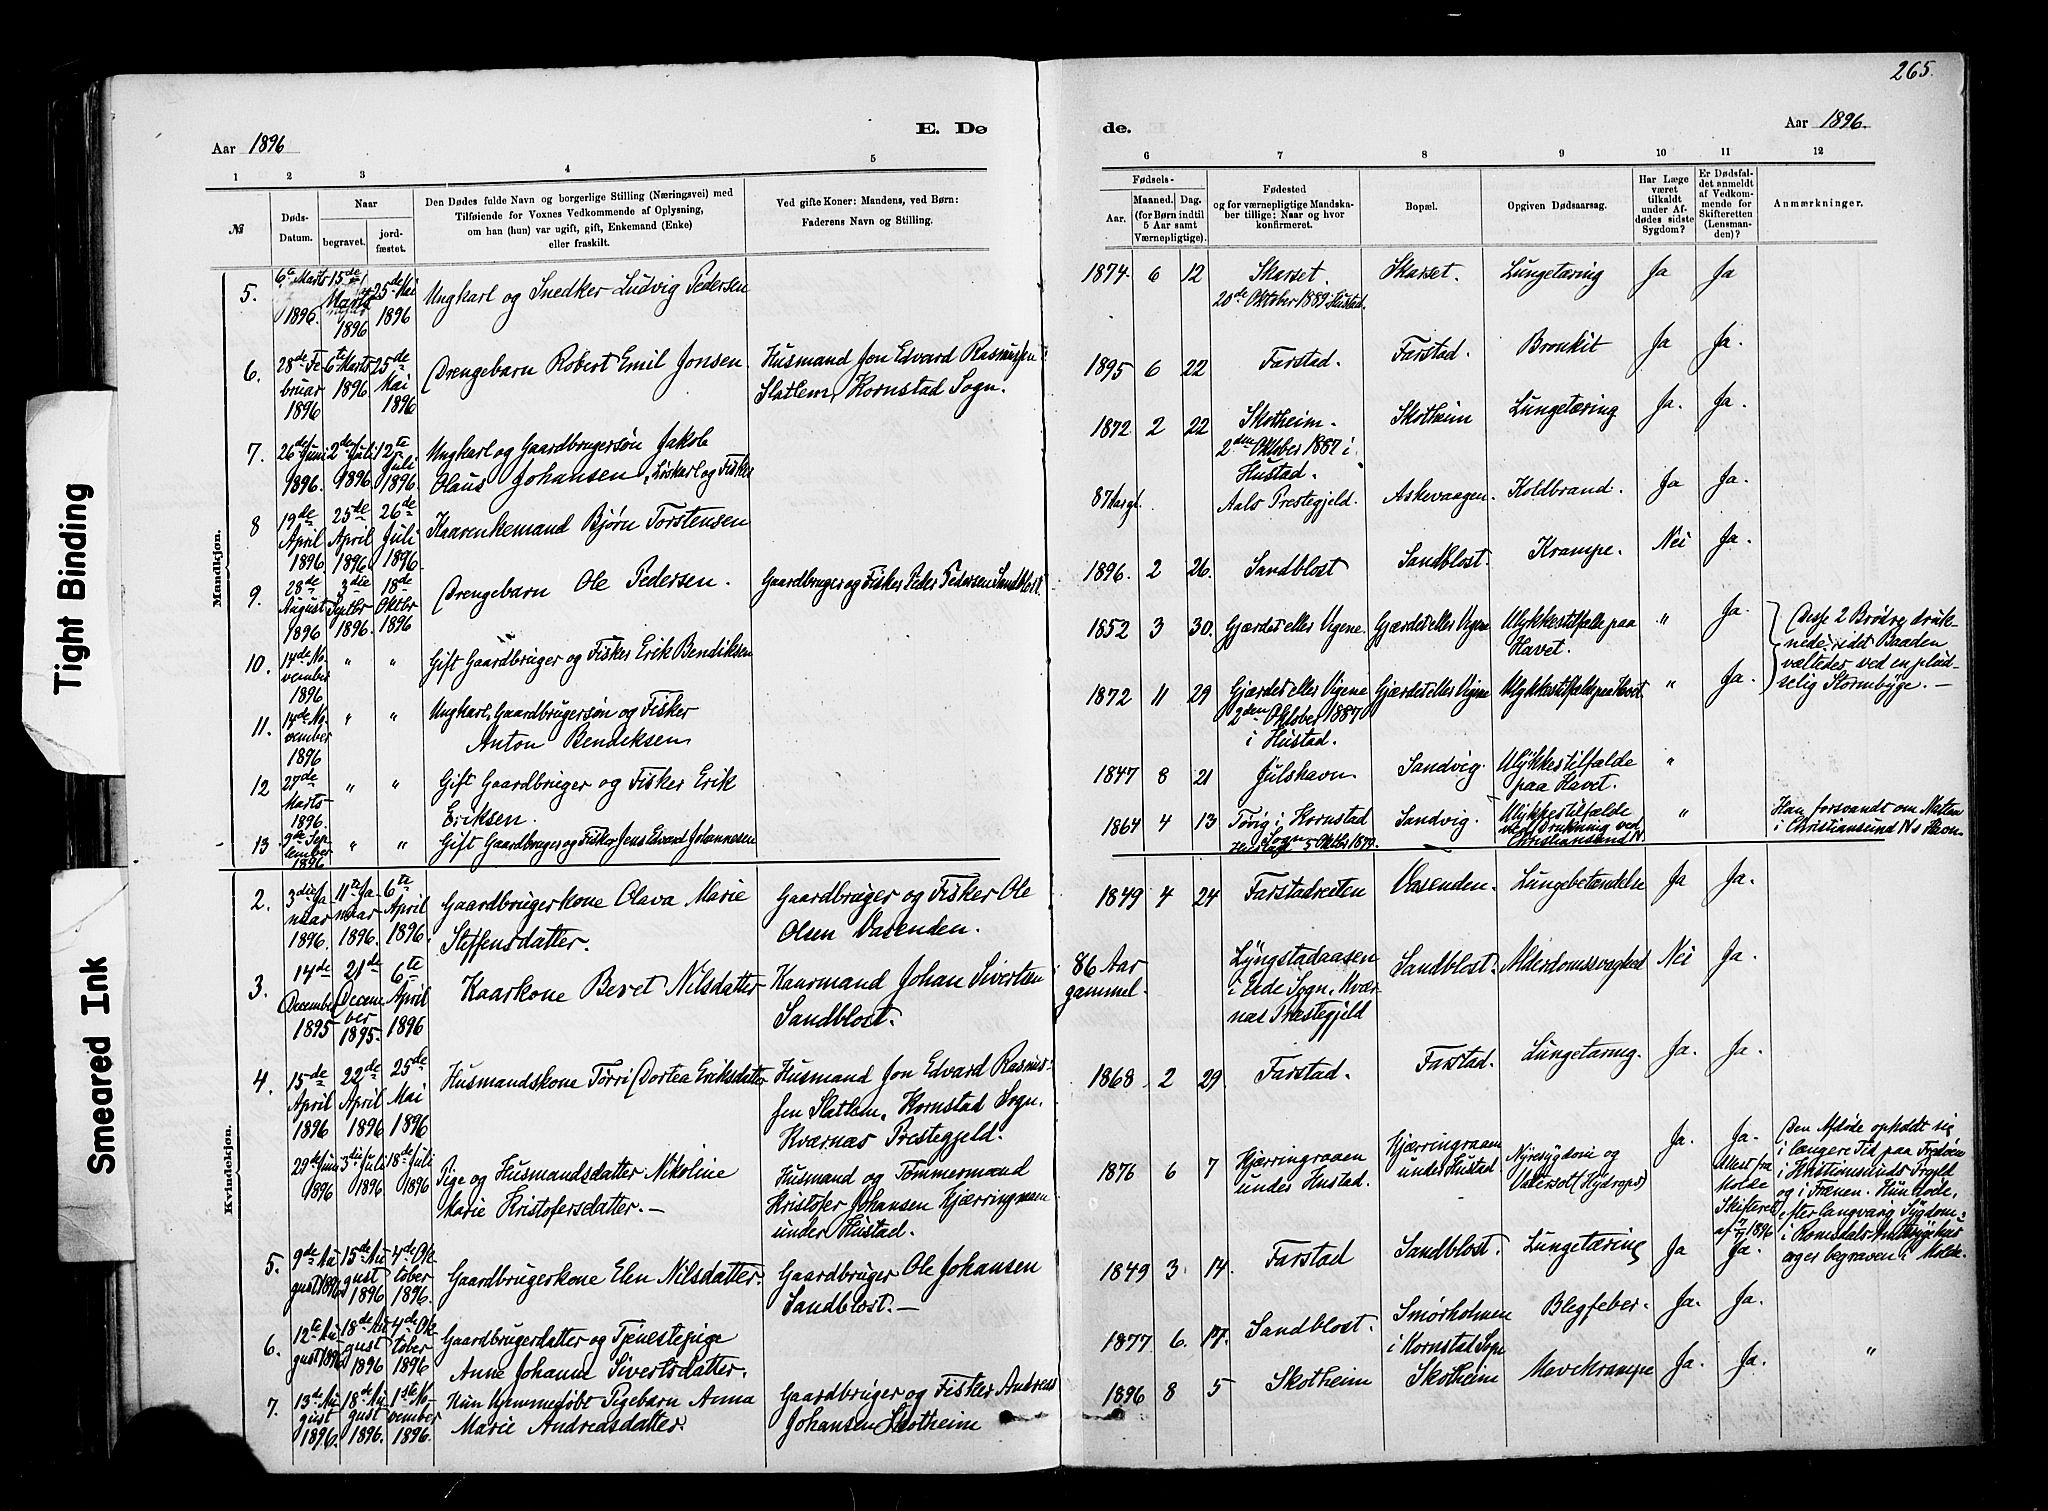 265.
Aar 1896
E. Dø
de.
Aar 1896.
1 2 3 4 5
6 7 8 9 10 11 12
№
Døds-Datum.
Naar
begravet.
jordfæstet.
Den Dødes fulde Navn og borgerlige Stilling (Næringsvei) med
Tilføiende for Voxnes Vedkommende af Oplysning,
om han (hun) var ugift, gift, Enkemand (Enke)
eller fraskilt.
Ved gifte Koner: Mandens, ved Børn:
Faderens Navn og Stilling.
Fødsels-
Aar.
Maaned. Dag.
(for Børn indtil
5 Aar samt
Værnepligtige).
Fødested
og for værnepligtige Mandskaber tillige: Naar og hvor
konfirmeret.
Bopæl.
Opgiven Dødsaarsag.
Har Læge
været
tilkaldt
under Afdødes sidste
Sygdom?
Er Dødsfaldet anmeldt
af Vedkommende for
Skifteretten
(Lensmanden)?
Anmærkninger.
Mandkjøn.
5. 6te Marts 1896. 15de Marts 1896 25de Mai 1896 Ungkarl og Snedker Ludvig Pedersen
1874. 6 12 Skarset. 20de Oktober 1889 i Hustad. Skarset. Lungetæring Ja Ja
6. 28de Februar 1896 6te Marts 1896. 25de Mai 1896 Drengebarn Robert Emil Jonsen Husmand Jon Edvard Rasmussen
Slatlem, Kornstad Sogn.
1895 6 22 Farstad. Farstad. Bronkit Ja Ja.
7. 26de Juni 1896. 2den Juli 1896. 12te Juli 1896. Ungkarl og Gaardbrugersøn Jakob
Olaus Johansen, Løskarl og Fisker
1872. 2 22 Skotheim. 2den Oktober 1887 i Hustad. Skotheim Lungetæring Ja. Ja.
8 19de April 1896 25de April 1896 26de Juli 1896. Kaarenkemand Bjørn Torstensen
87 Aar gl. Aals Prestegjeld. Askevaagen. Koldbrand. Ja Ja.
9. 28de August 1896 3die Septbr 1896. 18de Oktbr 1896 Drengebarn Ole Pedersen. Gaardbruger og Fisker Peder Pedersen Sandblost.
1896. 2 26. Sandblost Sandblost. Krampe. Nei Ja.
10. 14de November 1896 " " Gift Gaardbruger og Fisker Erik Bendiksen
1852 3 30. Gjærdet eller Vigene. Gjærdet eller Vigene Ulykkestilfælde paa Havet. " Ja.
Disse 2 Brødre druknede, idet Baaden
væltedes ved en pludselig Stormbyge.
11. 14de November 1896 " " Ungkarl, Gaardbrugersøn og Fisker
Anton Bendiksen
1872 11 29 Gjærdet eller Vigene 2den Oktober 1887 i Hustad. Gjærdet eller Vigene Ulykkestilfælde paa Havet. " Ja.
12 27de Marts 1896. " " Gift Gaardbruger og Fisker Erik
Eriksen.
1847 8 21 Julshavn Sandvig. Ulykkestilfælde paa Havet. "
13 9de September 1896 " " Gift Gaardbruger og Fisker Jens Edvard Johannesen
1864 4 13 Tøvig i Kornstad Sogn 5 Oktbr 1879. Sandvig. Ulykkestilfælde ved Drukning ved Christiansund N. "
Han forsvandt om Natten
i Christiansund N's Havn
Kvindekjøn.
2. 3die Januar 1896. 11te Januar 1896. 6te April 1896. Gaardbrugerkone Olava Marie
Steffensdatter. Gaardbruger og Fisker Ole
Olsen Vasenden.
1849 4 24 Farstadreiten Vasenden. Lungebetændelse Ja Ja.
3. 14de December 1895 21de December 1895. 6te April 1896 Kaarkone Beret Nilsdatter Kaarmand Johan Sivertsen
Sandblost.
86 Aar gammel. Lyngstadaasen i Eide Sogn, Kværnæs Prestegjeld Sandblost. Alderdomssvaghed Nei Ja.
4. 15de April 1896 22de April 1896 25de Mai 1896 Husmandskone Torri Dortea Eriksdatter Husmand Jon Edvard Rasmussen Slatlem, Kornstad Sogn,
Kværnæs Prestegjeld.
1868 2 29 Farstad. Farstad. Lungetæring. Ja. Ja.
29de Juni 1896 3die Juli 1896 18de Juli 1896 Pige og Husmandsdatter Nikoline
Marie Kristofersdatter. Husmand og Tømmermand
Kristofer Johansen Kjærringraaen
under Hustad.
1876 6 7 Kjærringraaen under Hustad. Kjærringraaen under Hustad. Nyresygdom og Vatersot (Hydrops) Ja. Ja.
Attest fra Molde Skifteret af 1896
Den Afdøde opholdt sig
i længere Tid paa Frydøen
i Kristiansunds Prgjld
og i Frænen. Hun døde,
efter langvarig Sygdom
i Romsdals Amtssygehus
og er begraven i Molde.
5. 9de August 1896 15de August 1896 4de Oktober 1896. Gaardbrugerkone Elen Nilsdatter. Gaardbruger Ole Johansen
Sandblost.
1849 3. 14. Farstad Sandblost. Lungetæring Ja Ja.
6. 12te August 1896 18de August 1896 4de Oktober 1896 Gaardbrugerdatter og Tjenestepige
Anne Johanna Sivertsdatter.
1877 6. 17. Sandblost. Smörholmen i Kornstad Sogn Blegfeber. Ja. Ja.
7. 13de August 1896. 18de August 1896. 1ste November 1896. Kun hjemmedøbt Pigebarn Anna
Marie Andreasdatter. Gaardbruger og Fisker Andreas
Johansen Skotheim
1896 8 5 Skotheim Skotheim Mavekrampe Ja. Ja. "
Tight Binding
Smeared Ink